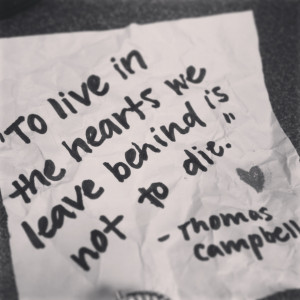 "To live in
the hearts we
leave behind is
not to die."
- Thomas
Campbell